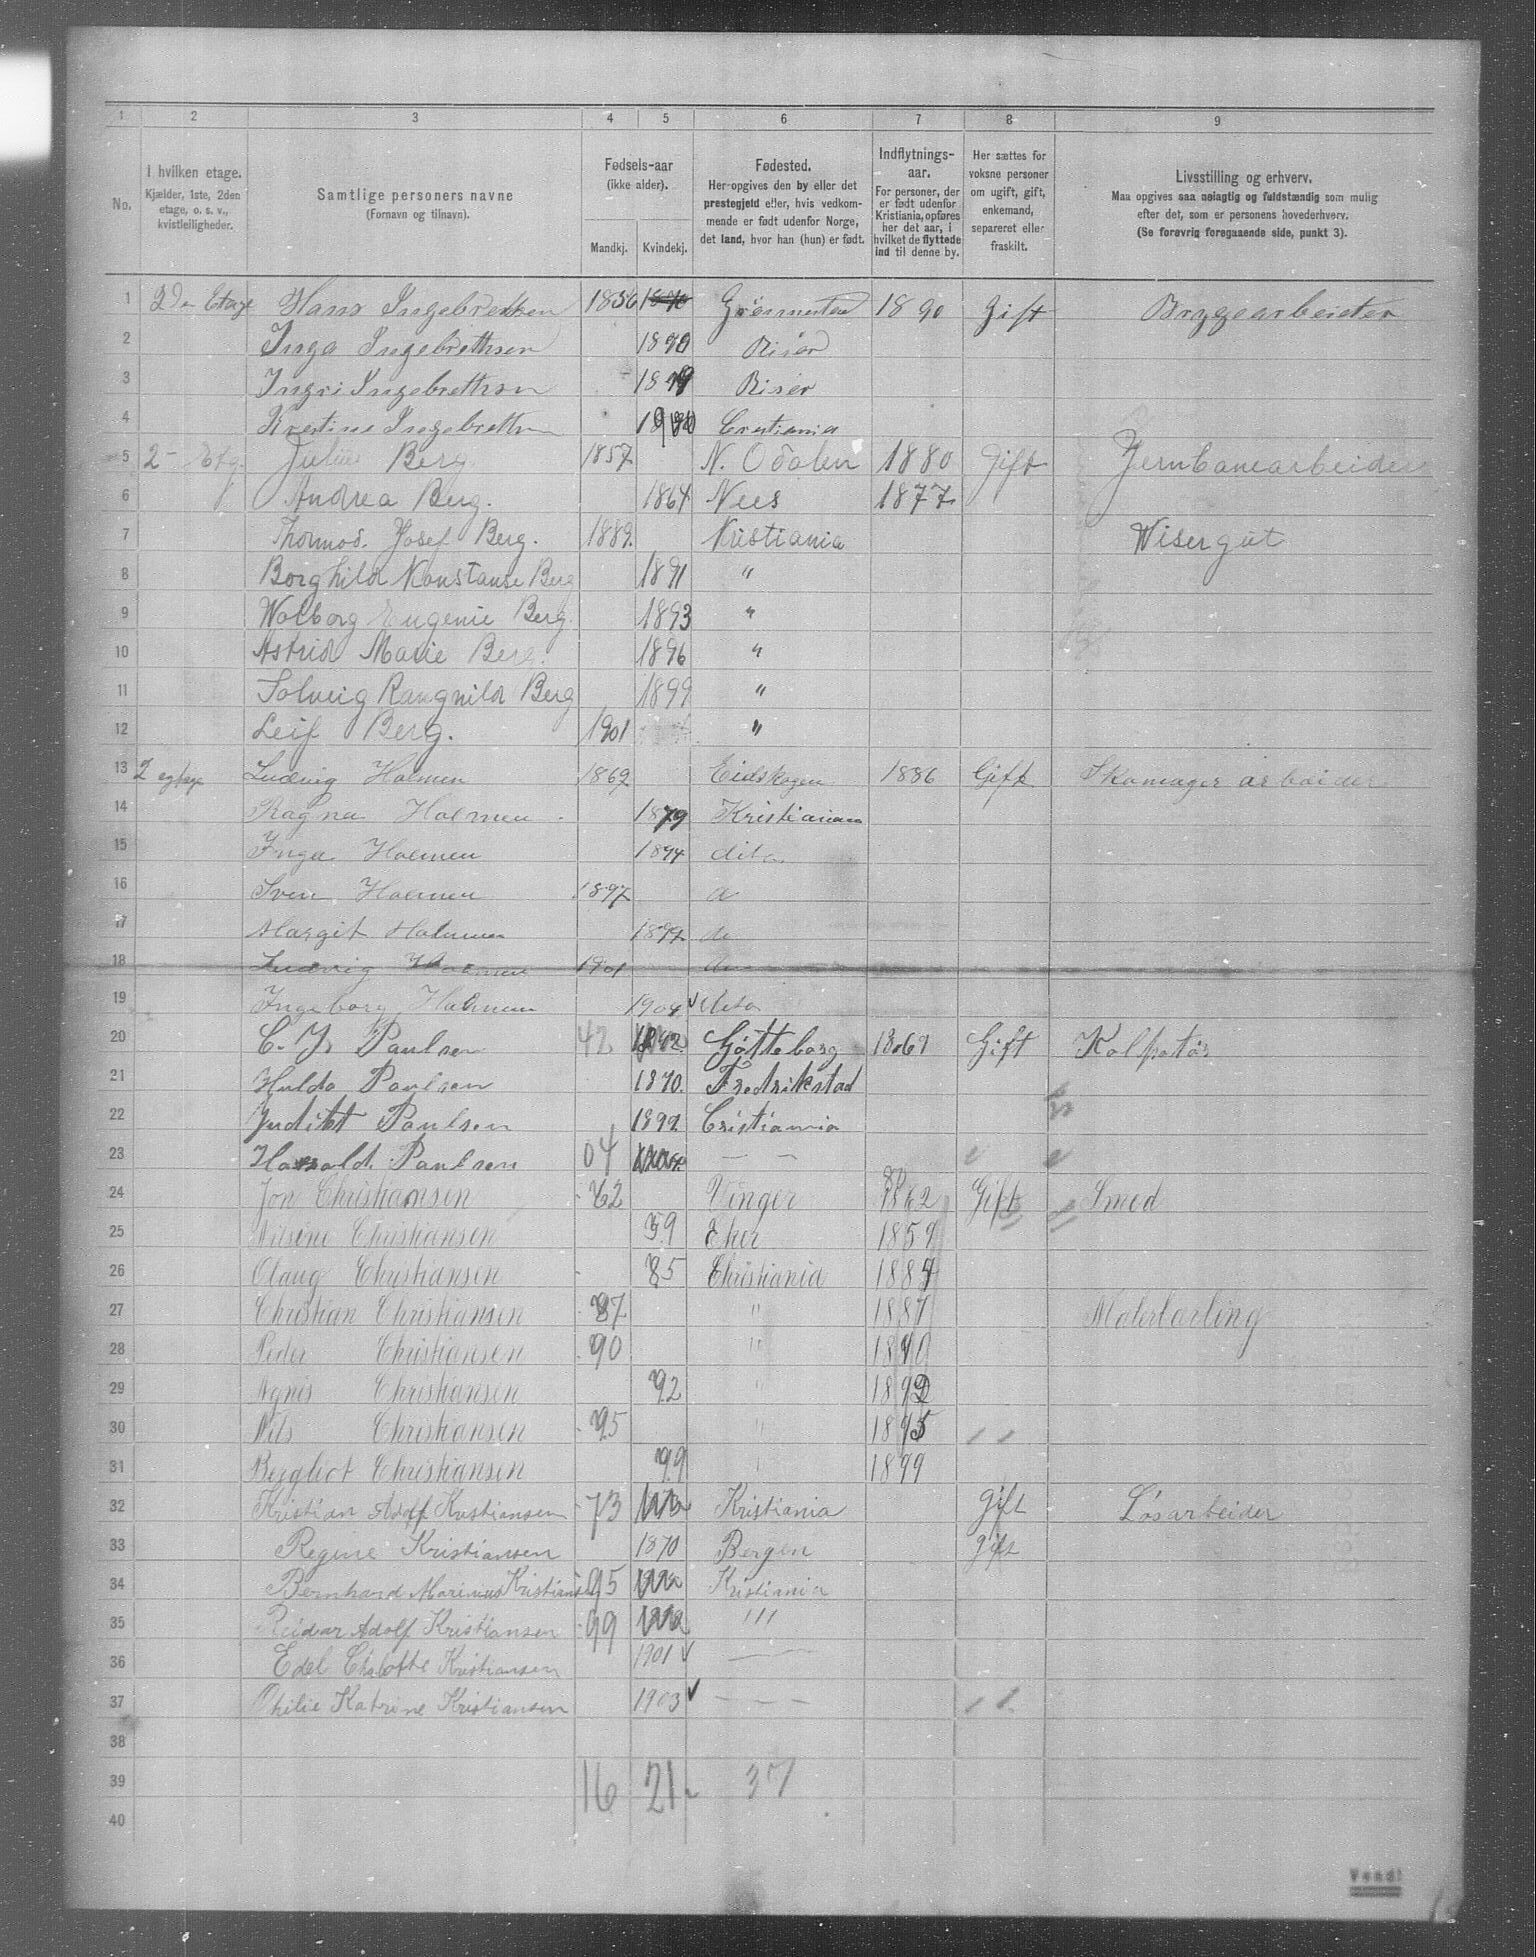 1 2 3 4 5 6 7 8 9
No.
I hvilken etage.
Kjælder, 1ste, 2den
etage, o. s. v.,
kvistleiligheder.
Samtlige personers navne
(Fornavn og tilnavn).
Fødsels-aar
(ikke alder).
Mandkj. Kvindekj.
Fødested.
Her opgives den by eller det
prestegjeld eller, hvis vedkom-
mende er født udenfor Norge,
det land, hvor han (hun) er født.
Indflytnings-
aar.
For personer, der
er født udenfor
Kristiania, opføres
her det aar, i
hvilket de flyttede
ind til denne by.
Her sættes for
voksne personer
om ugift, gift,
enkemand,
separeret eller
fraskilt.
Livsstilling og erhverv.
Maa opgives saa nøiagtig og fuldstændig som mulig
efter det, som er personens hovederhverv.
(Se forøvrig foregaaende side, punkt 3).
1 2de Etage Hans Ingebretsen 1856 1890 Gift Bryggearbeider
2 Inga Ingebrethsen Risør
3 Ingri Ingebrethsen Risør
4 Kristine Ingebrethsen Cristiania
5 2- Etg. Julius Berg 1857 N. Odalen 1880 Gift Jernbanearbeider
6 Andrea Berg. 1864 Nees 1877
7 Thormod. Josef Berg. 1889. Kristiania Wisergut
8 Borghild Konstanse Berg 1891 "
9 Wolborg Eugenie Berg. 1893 "
10 Astrid Marie Berg. 1896 "
11 Solveig Rangnild Berg 1899 "
12 Leif Berg. 1901 "
13 2 egtage Ludvig Holmen 1869 Eidskogen 1886 Gift Skomager arbeider
14 Ragna Holmen 1879 Kristianian
15 Inga Holmen 1894 dito
16 Sven Holmen 1897
17 Margit Holmen 1899 do
18 Ludvig Holmen 1901
19 Ingeborg Holmen 1904 dito
20 C. J. Paulsen 42 Gøtteborg 1869 Gift
21 Hulda Paulsen 1870. Fredrikstad
22 Juditht Paulsen 1899. Cristiania
23 Harald. Paulsen 04 — —
24 Jon Christiansen 62 Vinger Gift Smed
25 Nilsine Christiansen 59 Eker 1859
26 Olaug Christiansen 85 Christiania 1884
27 Christian Christiansen 87 " 1887 Malerlærling
28 Peder Christiansen 90 " 1890
29 Agnis Christiansen 92 " 1892
30 Nils Christiansen 95 " 1895
31 Bergliot Christiansen 99 " 1899
32 Kristian Adolf Kristiansen 73 Kristiania gift Løsarbeider
33 Regine Kristiansen 1870 Bergen gift
34 Bernhard Marinus Kristiansen 95 Kristiania
35 Reidar Adolf Kristiansen 99 "'
36 Edel Chalotte Kristiansen 1901 —
37 Othilie Katrine Kristiansen 1903 — — —
38
39 16 21 37
40
Vend!